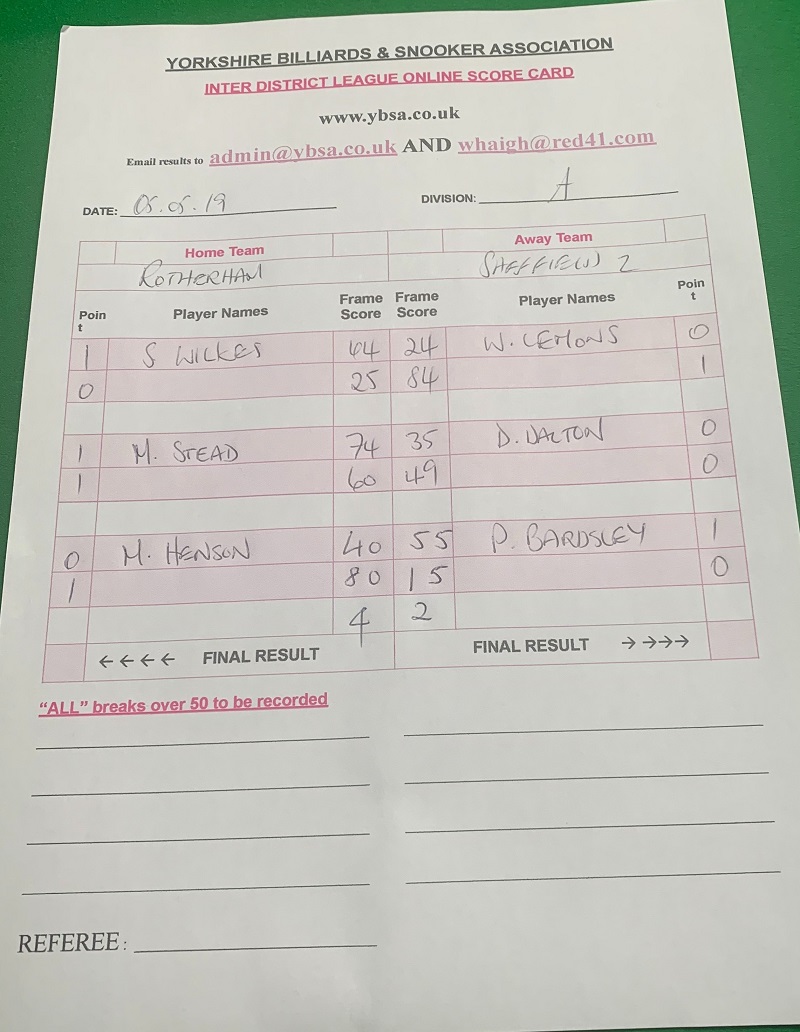 YORKSHIRE BILLIARDS & SNOOKER ASSOCIATION
INTER DISTRICT LEAGUE ONLINE SCORE CARD
www.ybsa.co.uk
Email results to admin@ybsa.co.uk AND whaigh@red41.com
DATE: 05.05.19 DIVISION: A
Home Team Away Team
ROTHERHAM SHEFFIELD 2
Point Player Names Frame Score Frame Score Player Names Point
1 S WILKES 64 24 W. LEMONS 0
0 25 84 1
1 M. STEAD 74 35 D. DALTON 0
1 60 49 0
0 M. HENSON 40 55 P. BARDSLEY 1
1 80 15 0
4 2
←←←← FINAL RESULT FINAL RESULT →→→→
“ALL” breaks over 50 to be recorded
REFEREE: